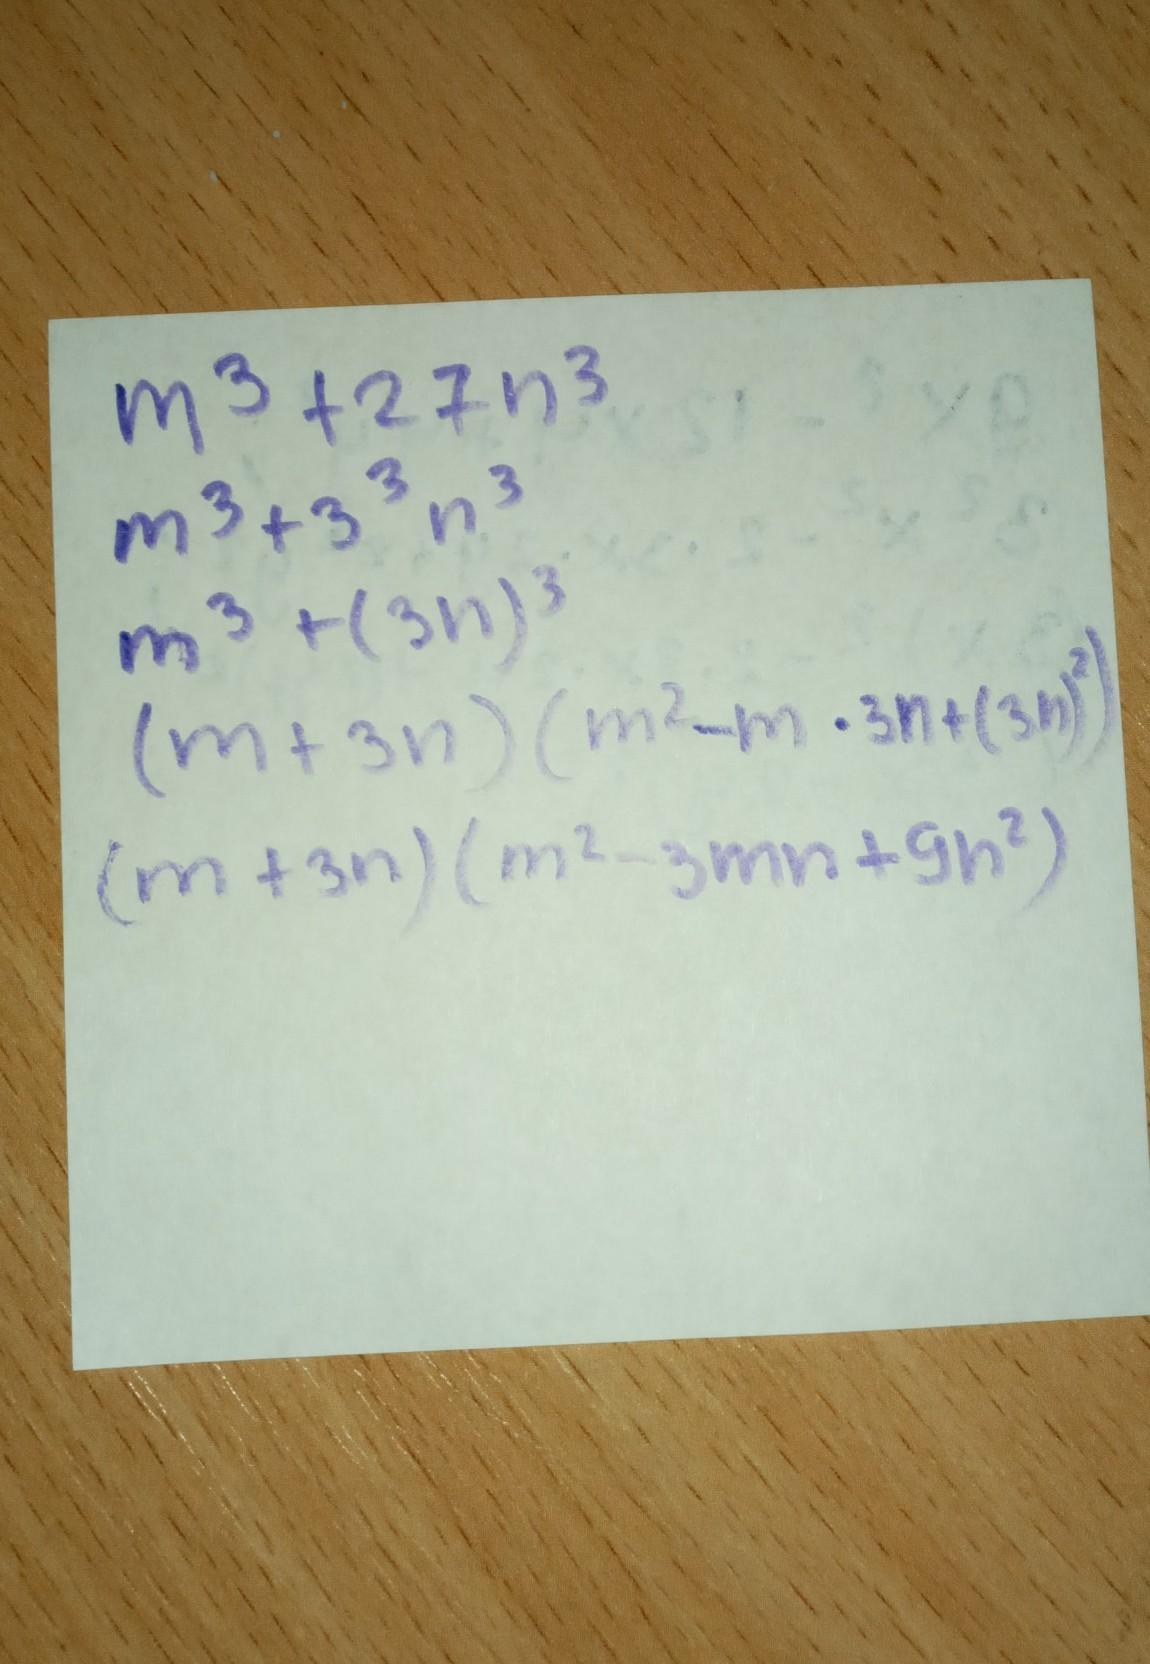 m³ + 27n³
m³ + 3³ n³
m³ + (3n)³
(m + 3n) (m² - m · 3n + (3n)²)
(m + 3n) (m² - 3mn + 9n²)